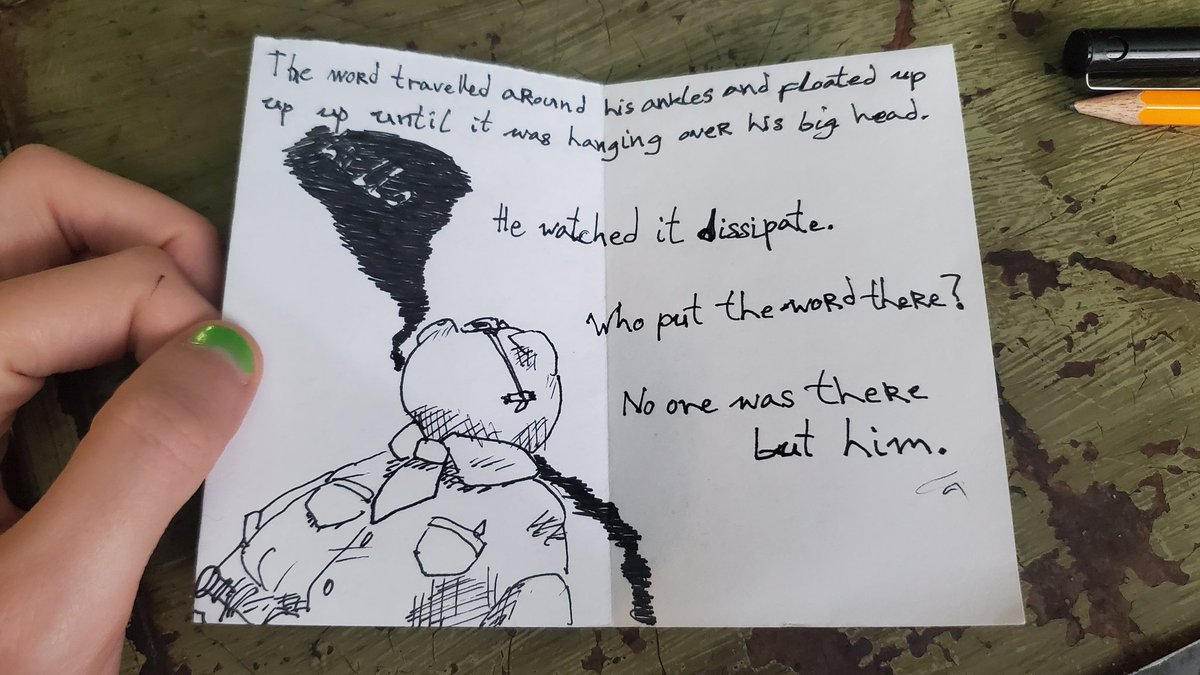 The word travelled around his ankles and floated up
up up until it was hanging over his big head.
He watched it dissipate.
Who put the word there?
No one was there
but him.